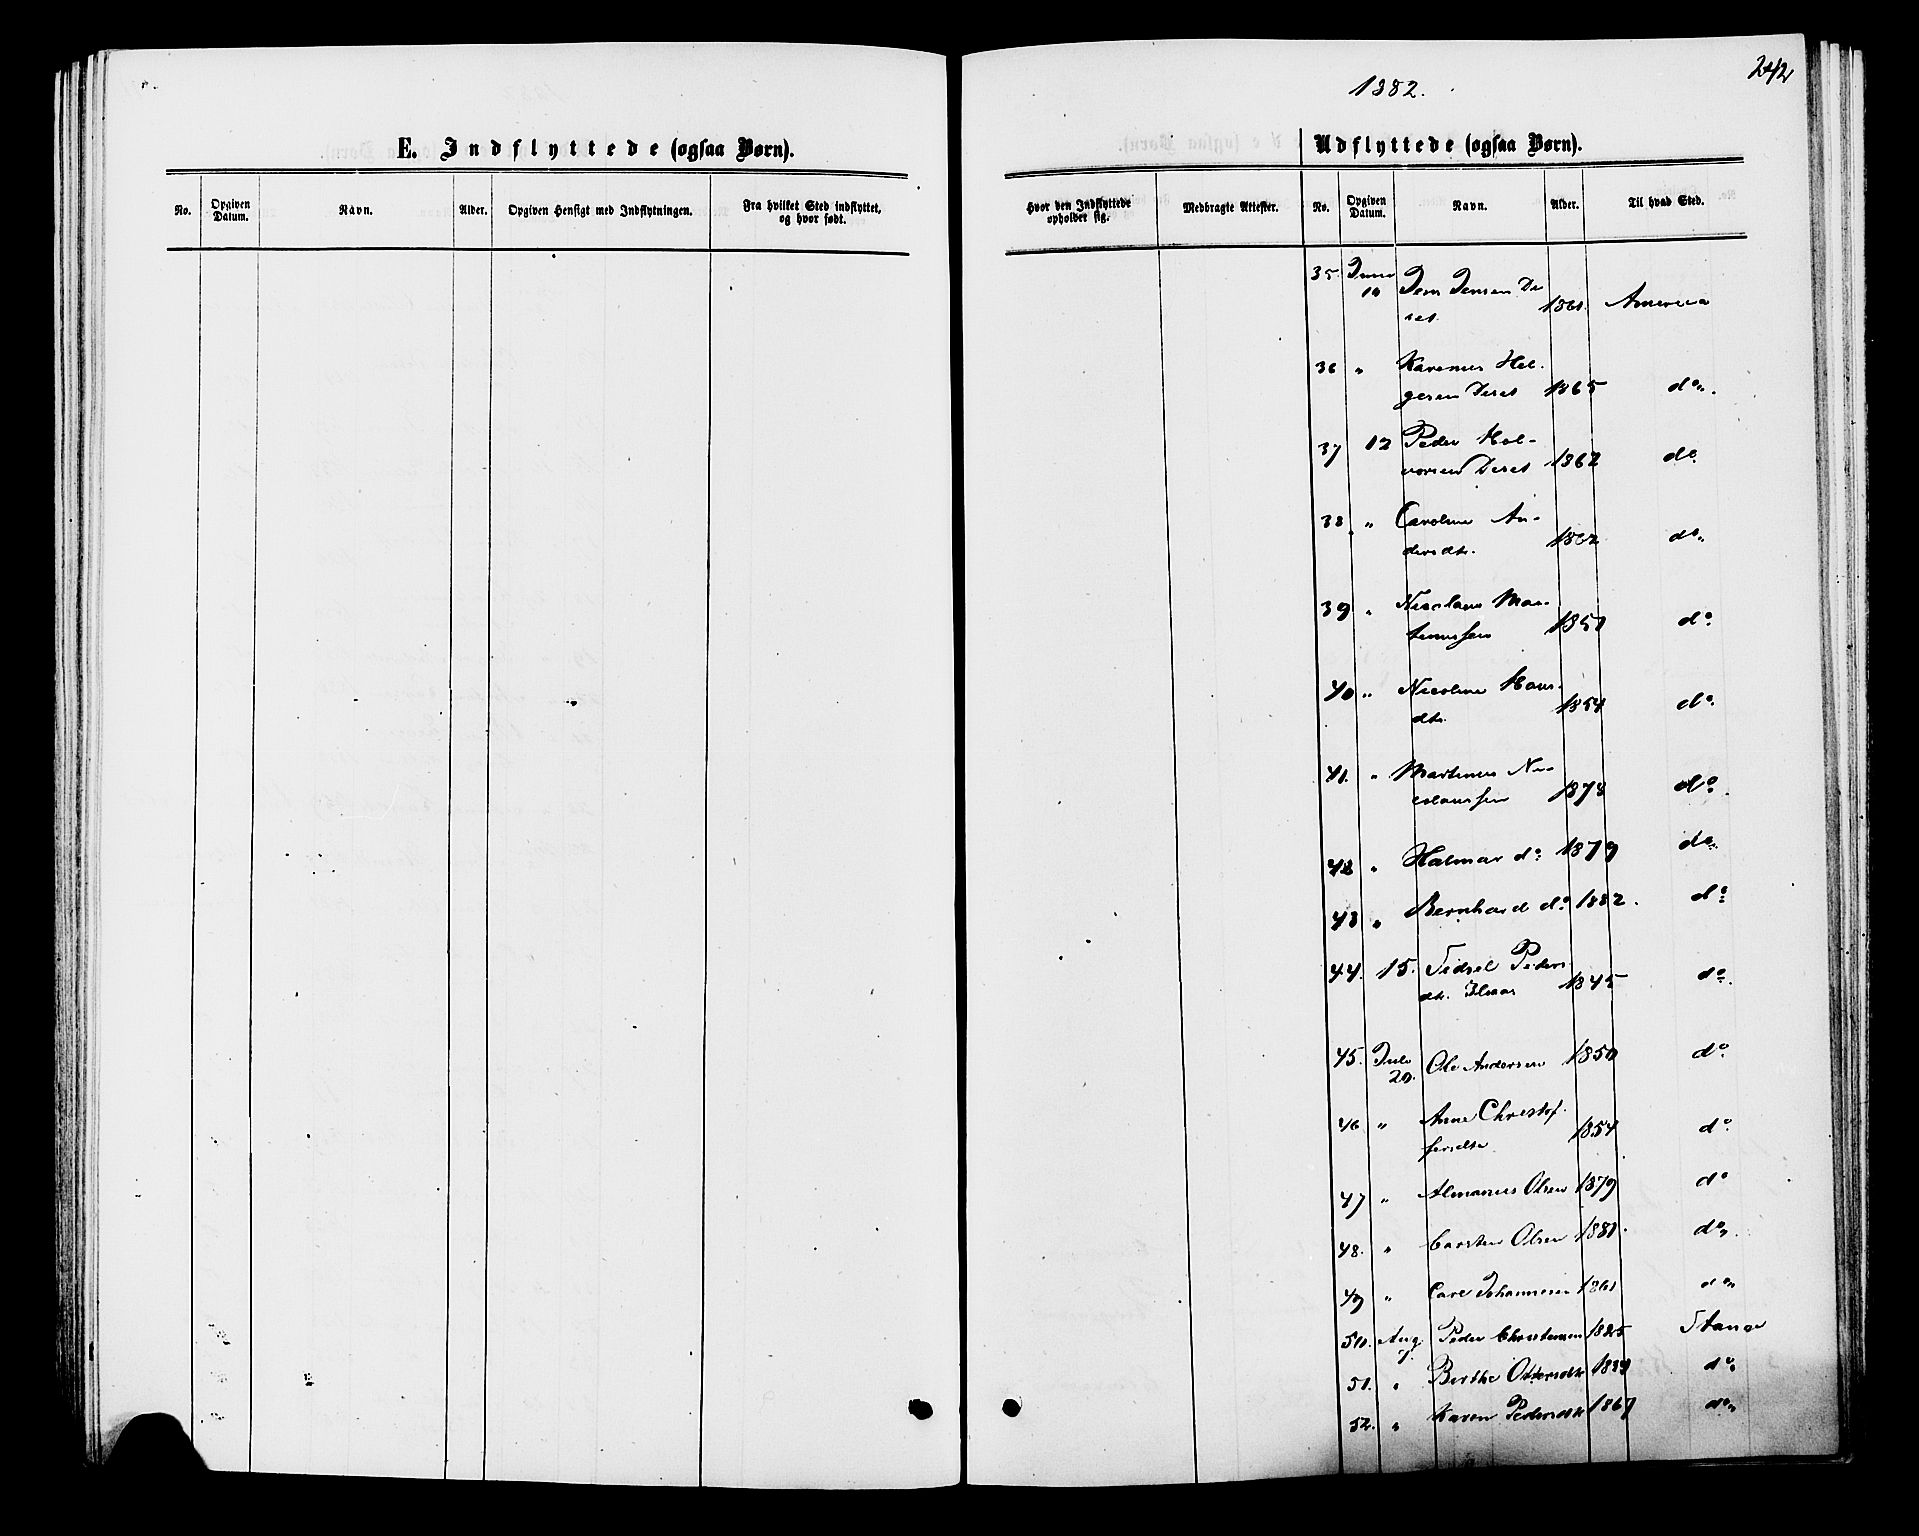 242
1882.
E. Indflyttede (ogsaa Børn).
Udflyttede (ogsaa Børn).
No. Opgiven Datum. Navn. Alder. Opgiven Hensigt med Indflytningen. Fra hvilket Sted indflyttet, og hvor født.
Hvor den Indflyttede opholder sig. Medbragte Attester. No. Opgiven Datum. Navn. Alder. Til hvad Sted.
35. Juni 10 Jens Jensen 1861 America
36 " Karenus Hel-
gesen 1865 do.
37 12 Peder Hal-
vorsen 1862 do
38 " Caroline An-
dersdtr. 1862 do
39 " Nicolaus Mar-
tinussen 1851 do.
40 " Nicoline Hans-
dtr. 1854 do.
41. " Martinus Ni-
colaussen 1878 do.
42 " Halmar do. 1879 do.
43 " Bernhard do 1882. do.
44. 15. Sidsel Peders
dtr. 1845 do.
45. Juli 20. Ole Andersen 1850 do.
46 " Anne Christof-
fersdtr 1854 do.
47 " Almanus Olsen 1879 do
48. " Carsten Olsen 1881. do.
49 " Carl Johannesen 1861 do
50. Aug 7. Peder Christensen 1825 Stange
51. " Berthe Ottersdtr do.
52. " Karen Pedersdtr 1867 do